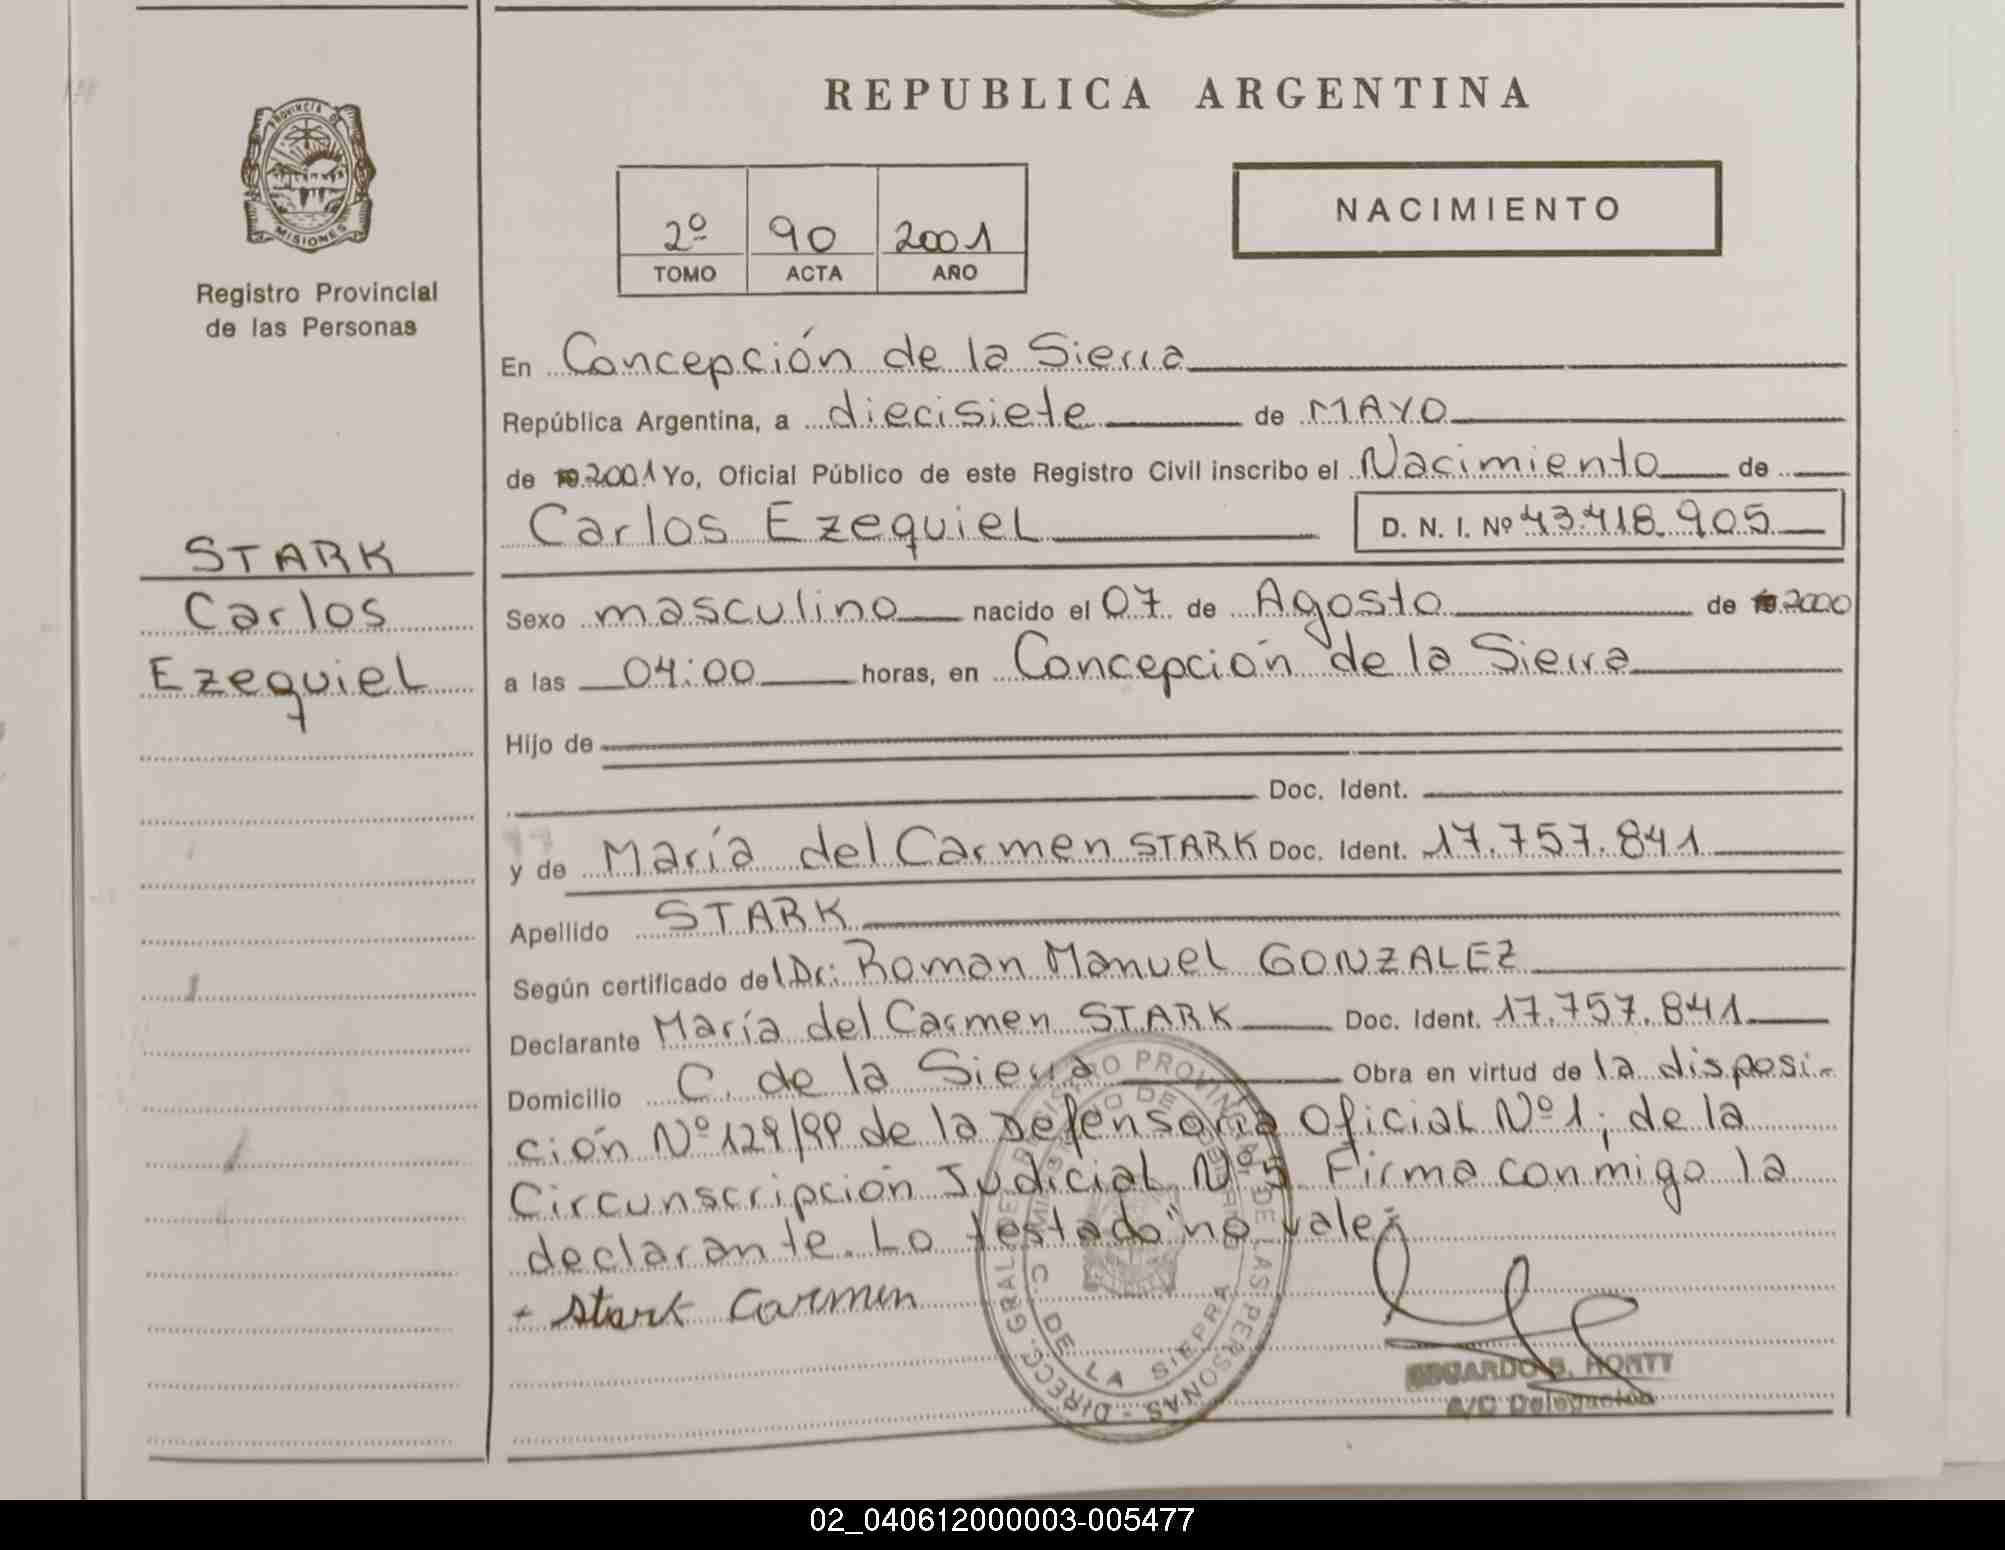 REPUBLICA ARGENTINA
PROVINCIA DE
MISIONES
Registro Provincial
de las Personas
2º 90 2001
TOMO ACTA AÑO
NACIMIENTO
STARK
Carlos
Ezequiel
En Concepción de la Sierra
República Argentina, a diecisiete de MAYO
de 2001 Yo, Oficial Público de este Registro Civil inscribo el Nacimiento de
Carlos Ezequiel D. N. I. Nº 43.418.905
Sexo masculino nacido el 07 de Agosto de 2000
a las 04:00 horas, en Concepción de la Sierra
Hijo de
Doc. Ident.
y de María del Carmen STARK Doc. Ident. 17.757.841
Apellido STARK
Según certificado del Dr: Roman Manuel GONZALEZ
Declarante María del Carmen STARK Doc. Ident. 17.757.841
Domicilio C. de la Sierra Obra en virtud de la disposi-
ción Nº 129/99 de la Defensoria Oficial Nº 1; de la
Circunscripción Judicial Nº 5. Firma conmigo la
declarante. Lo testado "no vale"
Stark Carmen
DIRECC. GRAL. DEL REGISTRO PROVINCIAL DE LAS PERSONAS
C. DE LA SIERRA
EDGARDO S. HORTT
A/C Delegación
02_040612000003-005477